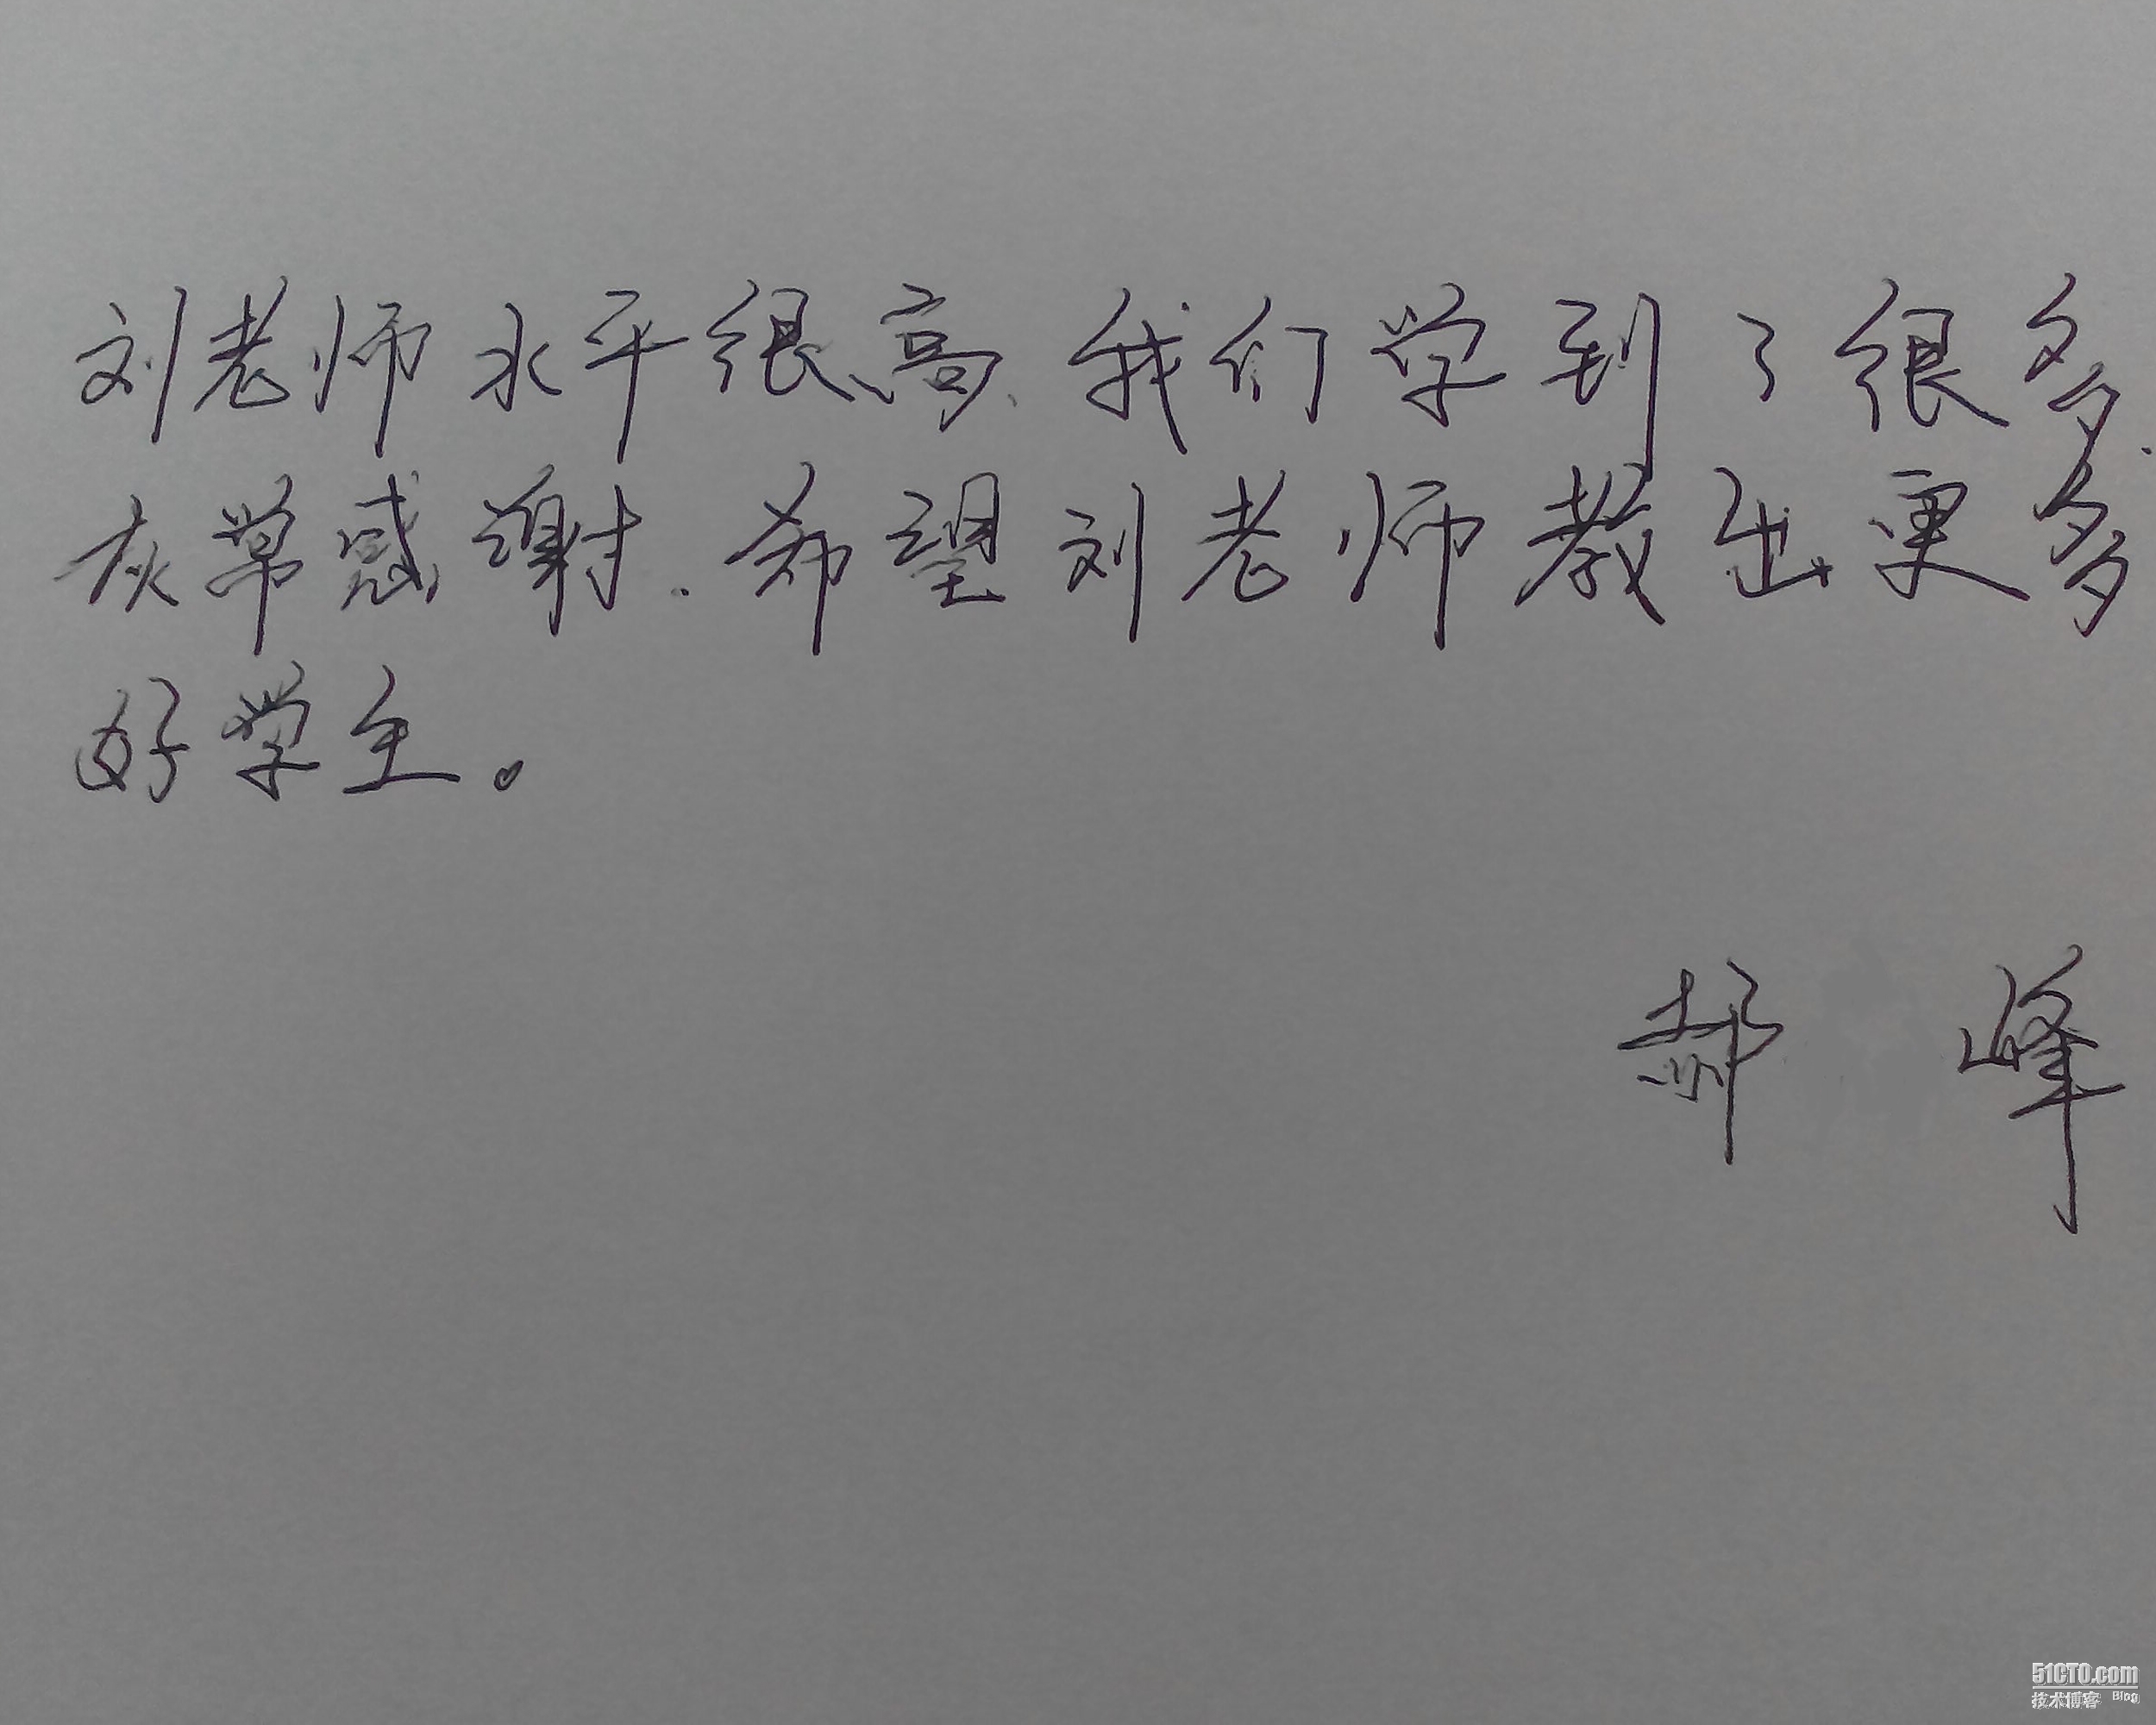 刘老师水平很高、我们学到了很多.
灰常感谢.希望刘老师教出更多
好学生。
郝 峰
51CTO.com
技术博客 Blog